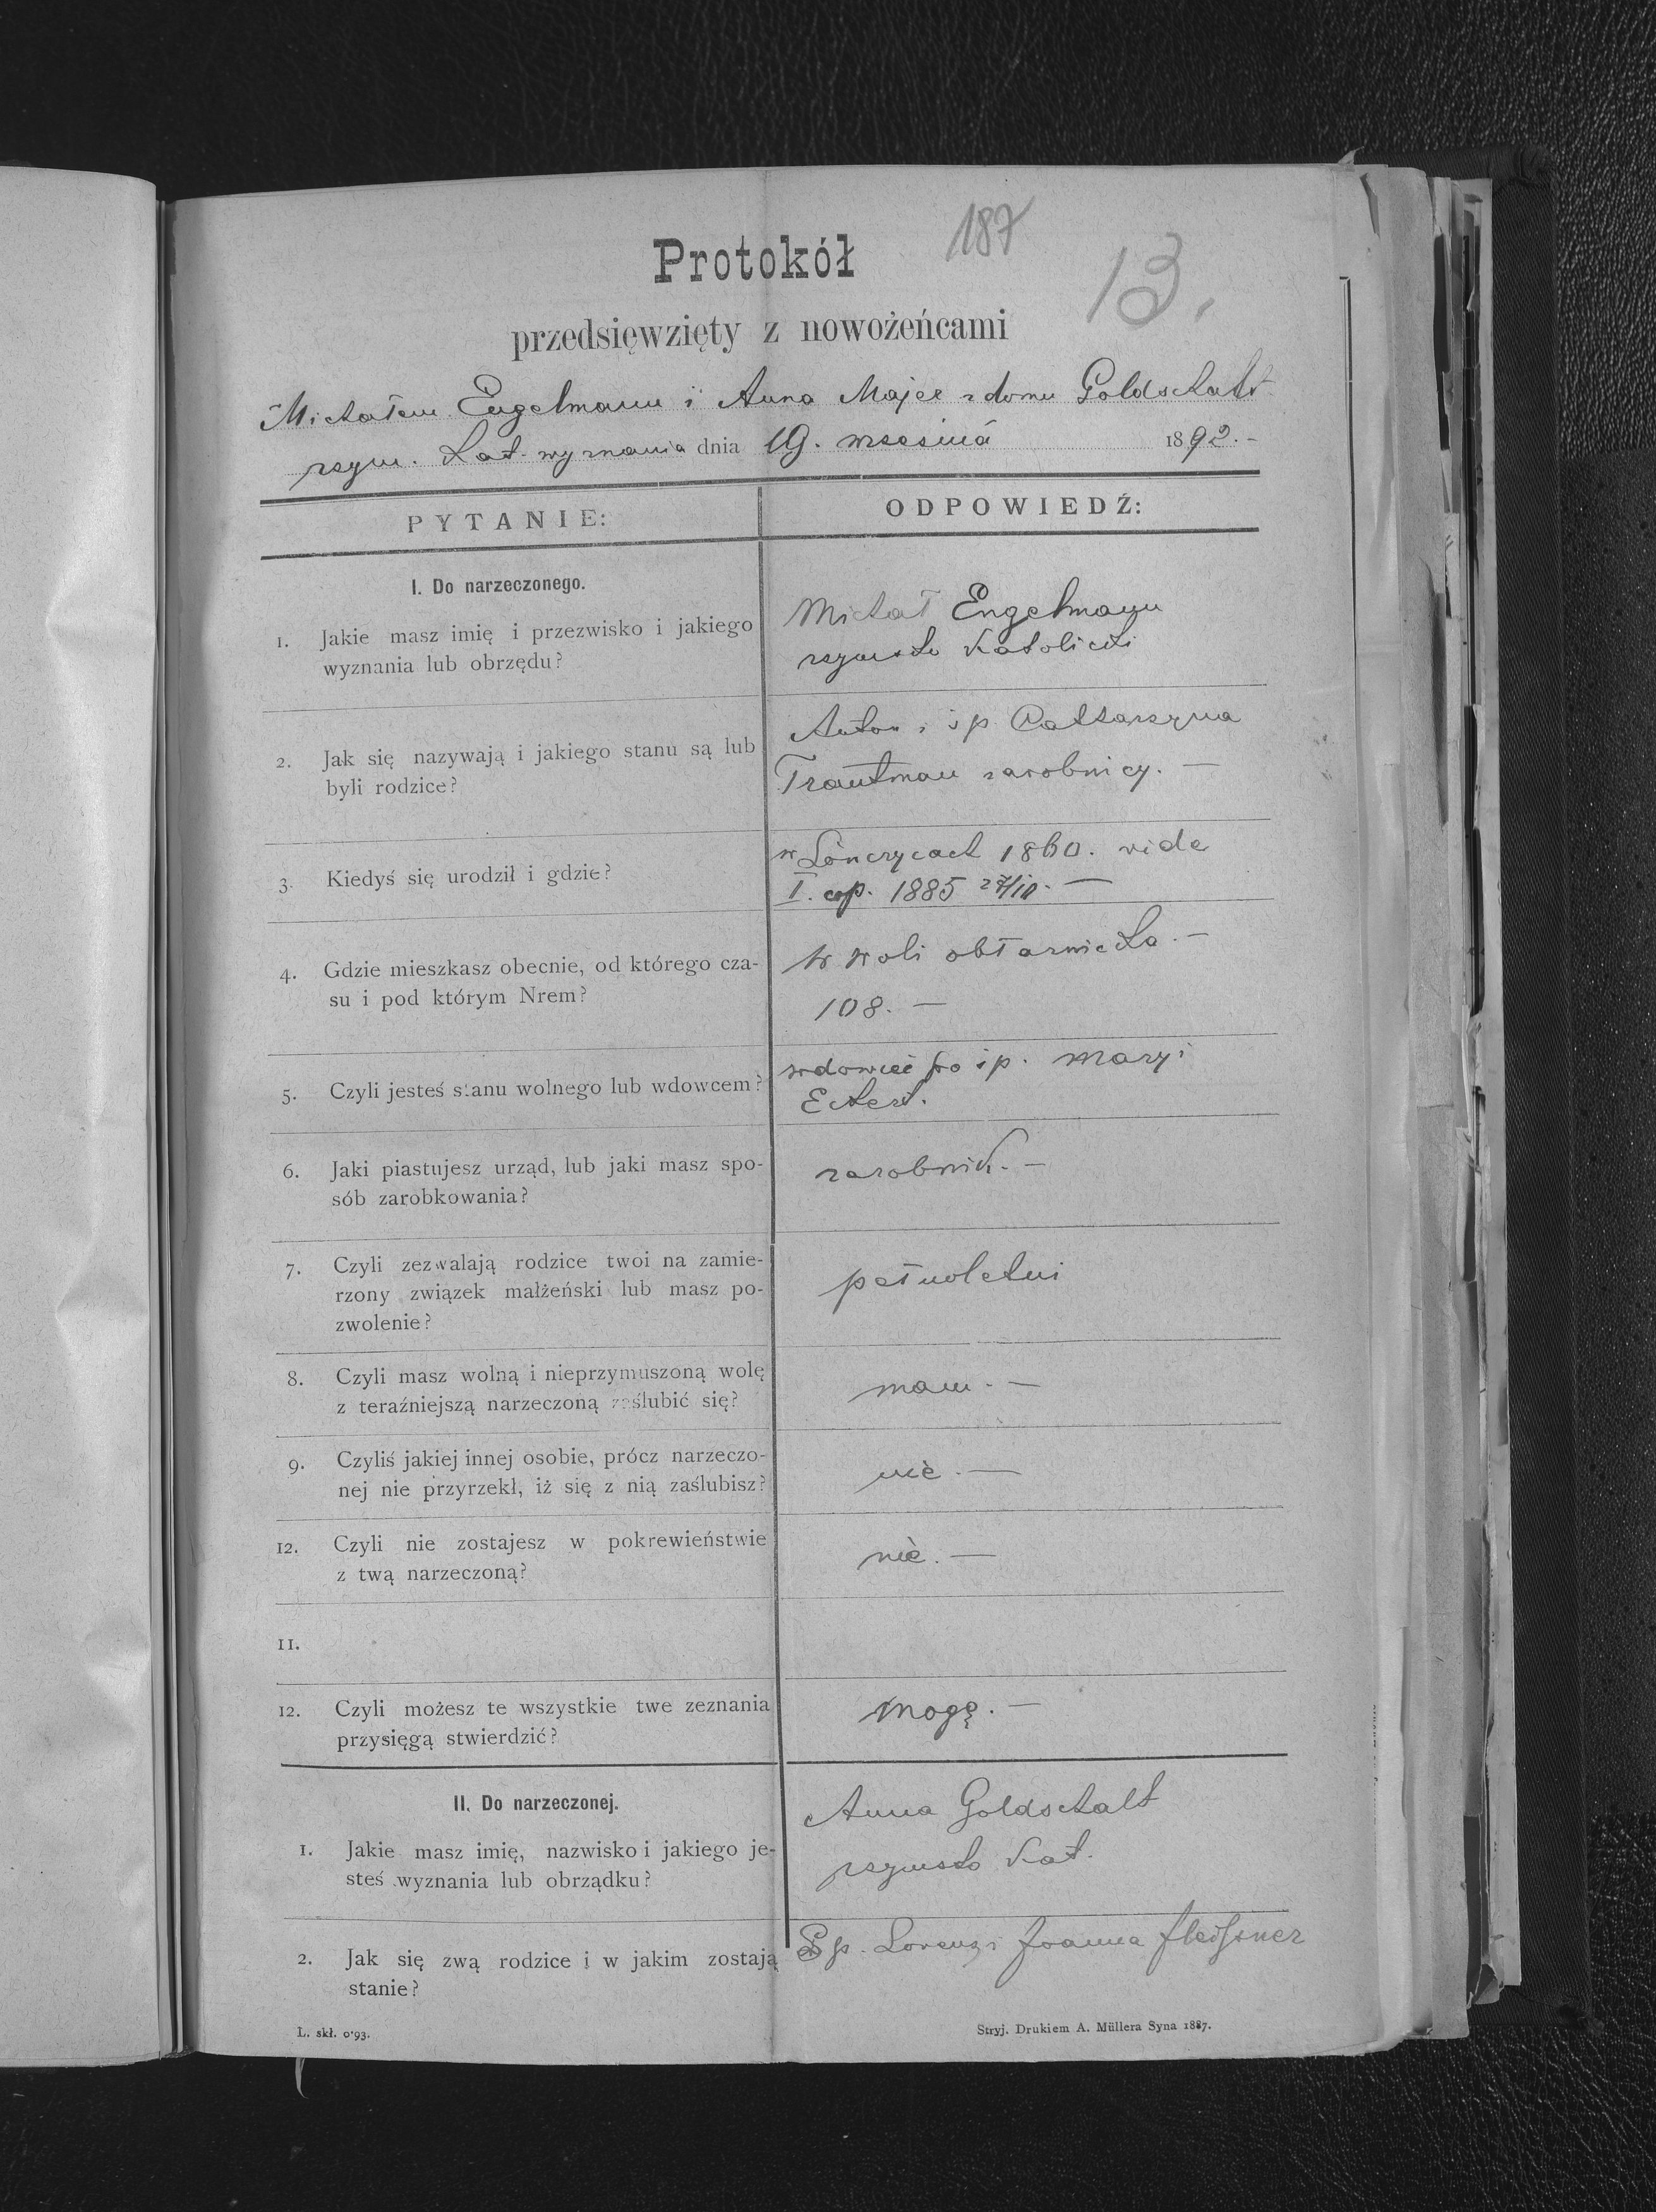 187
Protokół
13.
przedsięwzięty z nowożeńcami
Michałem Engelmann i Anna Majer z domu Goldschalt
rzym. kat. wyznania dnia 19. września 1892.-
PYTANIE:
ODPOWIEDŹ:
I. Do narzeczonego.
1. Jakie masz imię i przezwisko i jakiego
wyznania lub obrzędu?
Michał Engelmann
rzymsko katolicki
2. Jak się nazywają i jakiego stanu są lub
byli rodzice?
Anton i śp. Katharzyna
Trautman zarobnicy. —
3. Kiedyś się urodził i gdzie?
w 1860. vide
I. cop. 1885 —
4. Gdzie mieszkasz obecnie, od którego cza-
su i pod którym Nrem?
w woli obłaznicka —
108. —
5. Czyli jesteś stanu wolnego lub wdowcem?
wdowiec po śp. Maryi
Eckert.
6. Jaki piastujesz urząd, lub jaki masz spo-
sób zarobkowania?
zarobnik. —
7. Czyli zezwalają rodzice twoi na zamie-
rzony związek małżeński lub masz po-
zwolenie?
pełnoletni
8. Czyli masz wolną i nieprzymuszoną wolę
z teraźniejszą narzeczoną zaślubić się?
mam. —
9. Czyliś jakiej innej osobie, prócz narzeczo-
nej nie przyrzekł, iż się z nią zaślubisz?
nie. —
12. Czyli nie zostajesz w pokrewieństwie
z twą narzeczoną?
nie. —
11.
12. Czyli możesz te wszystkie twe zeznania
przysięgą stwierdzić?
mogę. —
II. Do narzeczonej.
1. Jakie masz imię, nazwisko i jakiego je-
steś wyznania lub obrządku?
Anna Goldschalt
rzymsko kat.
2. Jak się zwą rodzice i w jakim zostają
stanie?
Śp. Lorenz i Joanna Fleißner
L. skł. 0·93.
Stryj. Drukiem A. Müllera Syna 1887.